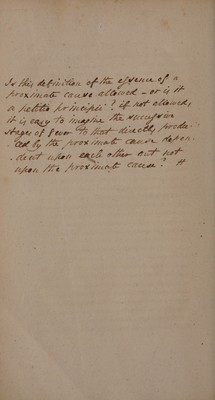 Is this definition of the essence of a
proximate cause allowed – or is it
a petitio principii? if not allowed,
it is easy to imagine the successive
stages of fever to that directly produ-
-ced by the proximate cause depen
-dent upon each other but not
upon the proximate cause? H